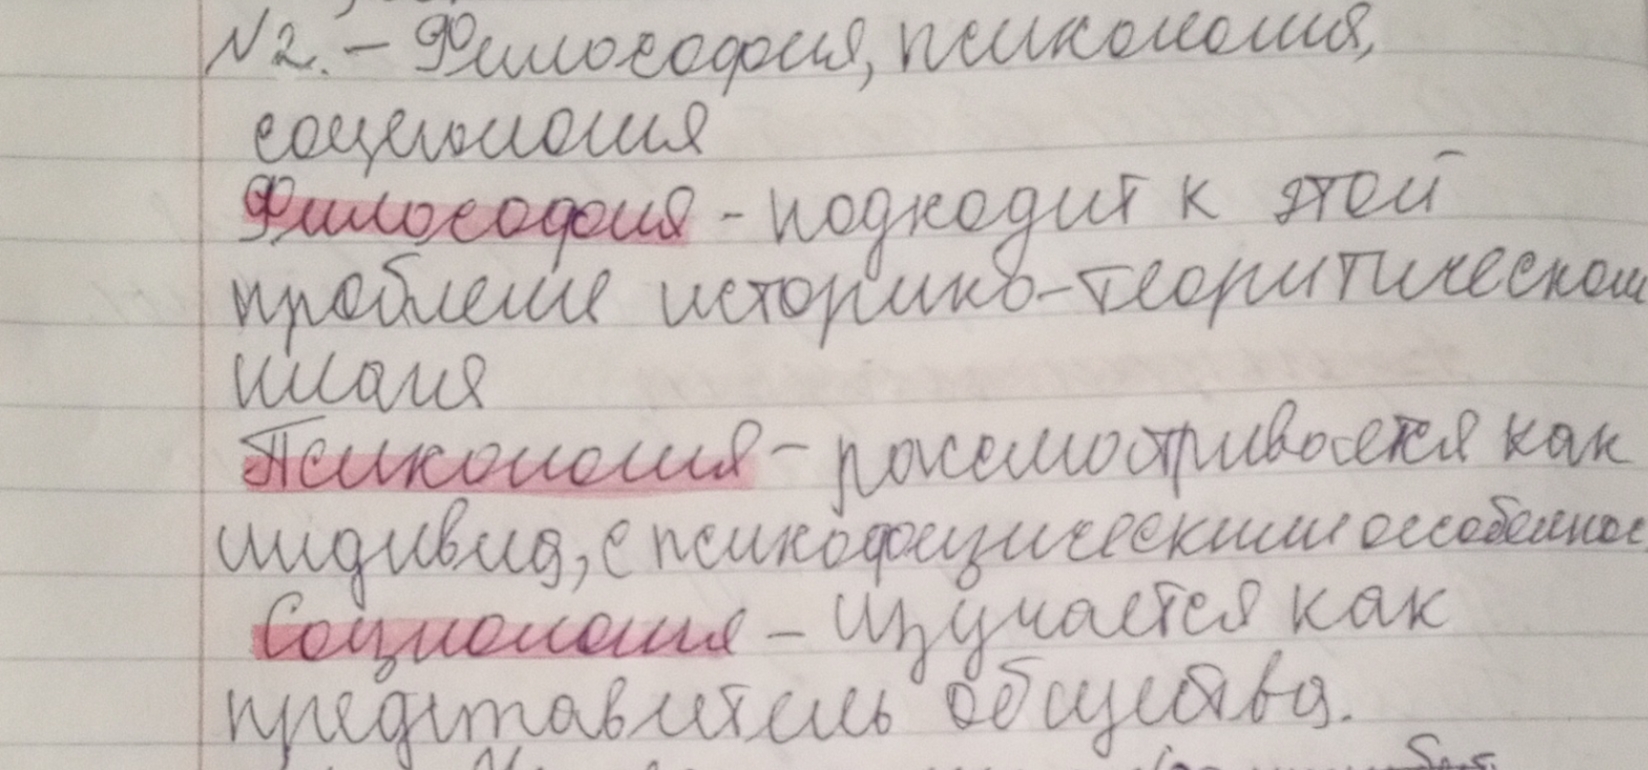 №2. – Философия, психология,
социология
Философия – подходит к этой
проблеме историко-теоритическом
плана
Психология – рассмотривается как
индивид, с психофизическими особеннос
Социология – изучается как
представитель общества.